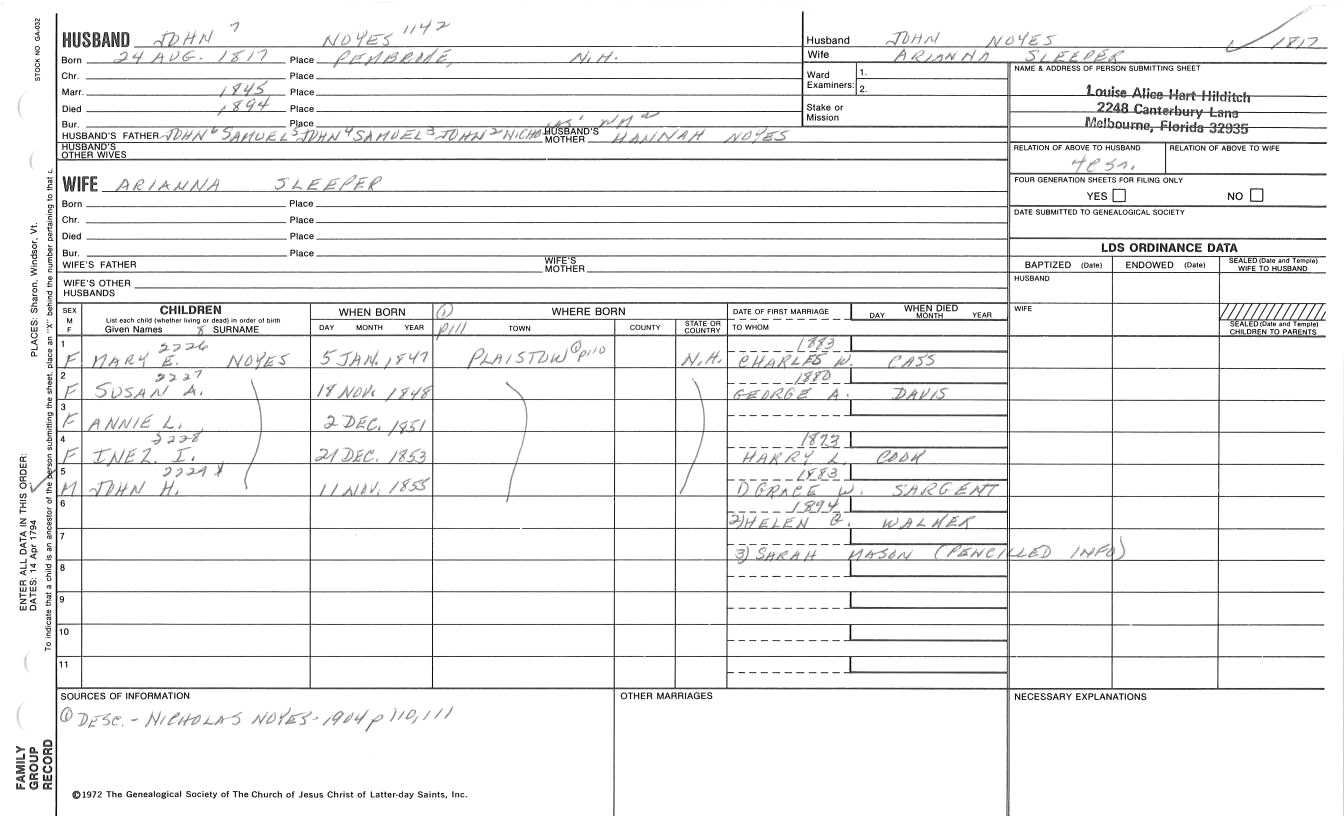 STOCK NO. GA-032
HUSBAND JOHN 7 NOYES 1142
Born 24 AUG. 1817 Place PEMBROKE, N.H.
Chr. Place
Marr. 1845 Place
Died 1894 Place
Bur. Place
HUSBAND'S FATHER JOHN 6 SAMUEL 5 JOHN 4 SAMUEL 3 JOHN 2 NICHOLAS' WM a HUSBAND'S MOTHER HANNAH NOYES
HUSBAND'S OTHER WIVES
Husband JOHN NOYES 1817
Wife ARIANNA SLEEPER
Ward Examiners: 1.
2.
Stake or Mission
NAME & ADDRESS OF PERSON SUBMITTING SHEET
Louise Alice Hart Hilditch
2248 Canterbury Lane
Melbourne, Florida 32935
RELATION OF ABOVE TO HUSBAND RELATION OF ABOVE TO WIFE
FOUR GENERATION SHEETS FOR FILING ONLY
YES NO
DATE SUBMITTED TO GENEALOGICAL SOCIETY
WIFE ARIANNA SLEEPER
Born Place
Chr. Place
Died Place
Bur. Place
WIFE'S FATHER WIFE'S MOTHER
WIFE'S OTHER HUSBANDS
LDS ORDINANCE DATA
BAPTIZED (Date) ENDOWED (Date) SEALED (Date and Temple) WIFE TO HUSBAND
HUSBAND
WIFE
SEALED (Date and Temple) CHILDREN TO PARENTS
SEX M F
CHILDREN
List each child (whether living or dead) in order of birth
Given Names & SURNAME
WHEN BORN
DAY MONTH YEAR
① p111
WHERE BORN
TOWN COUNTY STATE OR COUNTRY
DATE OF FIRST MARRIAGE
TO WHOM
WHEN DIED
DAY MONTH YEAR
1 2226 1883
F MARY E. NOYES 5 JAN. 1847 PLAISTOW ① p110 N.H. CHARLES W. CASS
2 2227 1880
F SUSAN A. 18 NOV. 1848 GEORGE A. DAVIS
3
F ANNIE L. 2 DEC. 1851
4 2228 1873
F INEZ. I. 21 DEC. 1853 HARRY L. COOK
5 2229 X 1883
M JOHN H. 11 NOV. 1855 1) GRACE W. SARGENT
6 1894
2) HELEN B. WALKER
7
3) SARAH MASON (PENCILLED INFO)
8
9
10
11
SOURCES OF INFORMATION
① DESC. - NICHOLAS NOYES - 1904 p 110, 111
OTHER MARRIAGES
NECESSARY EXPLANATIONS
©1972 The Genealogical Society of The Church of Jesus Christ of Latter-day Saints, Inc.
ENTER ALL DATA IN THIS ORDER:
DATES: 14 Apr 1794 PLACES: Sharon, Windsor, Vt.
To indicate that a child is an ancestor of the person submitting the sheet, place an "X" behind the number pertaining to that
FAMILY
GROUP
RECORD